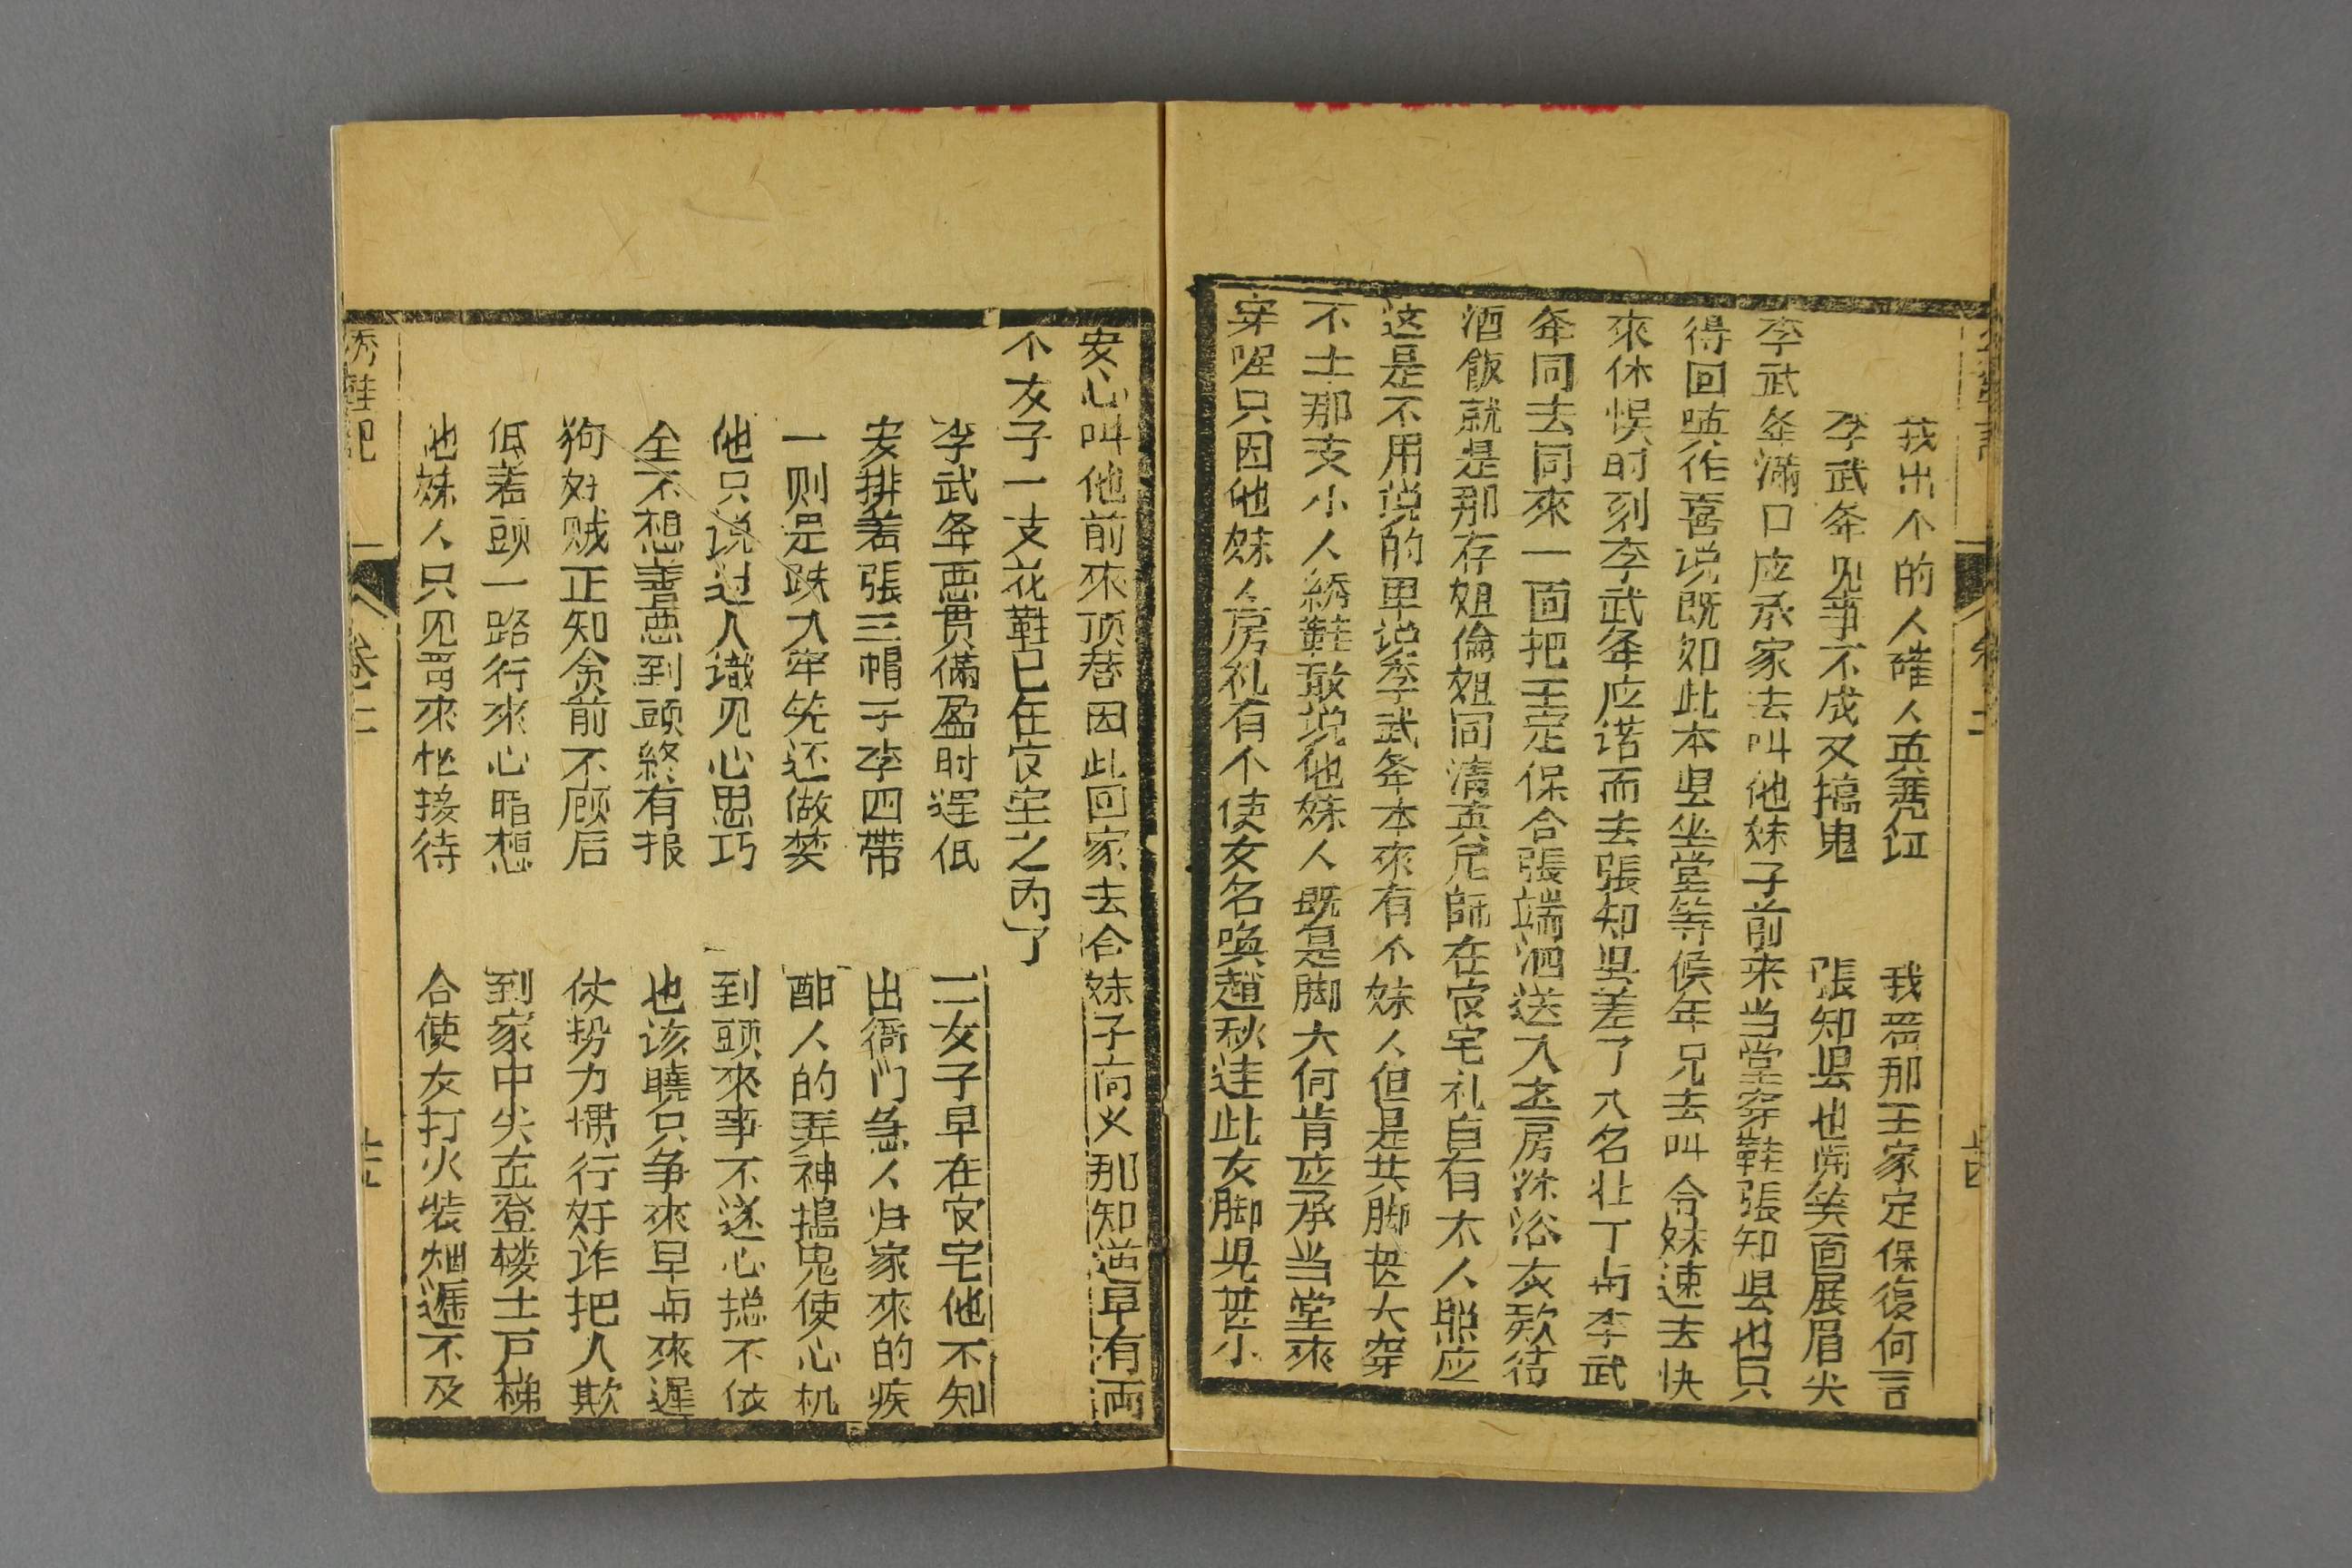 我出个的人確人真凴证　我哥那王家定保復何言
李武夆见事不成又搞鬼　張知县也開笑面展眉尖
李武夆滿口应承家去叫他妹子前来当堂穿鞋張知县也只
得回嗔作喜说既如此本县坐堂等候年兄去叫令妹速去快
來休悮时刻李武夆应诺而去張知县差了八名壮丁与李武
夆同去同來一面把王定保合張端泗送入书房沐浴衣欵待
酒飯就是那存姐倫姐同清真尼師在官宅礼自有太人照应
这是不用说的单说李武夆本來有个妹人但是其脚甚大穿
不上那支小人綉鞋敢说他妹人既是脚大何肯应承当堂來
穿呢只因他妹人房礼有个使女名喚趙秋连此女脚児甚小
安心叫他前來顶替因此回家去合妹子商义那知道早有両
个女子一支花鞋已在官宅之内了
李武夆恶贯满盈时运低　二女子早在官宅他不知
安排着張三帽子李四帶　出衙门急人归家來的疾
一则是跌入牢笼还做梦　酣人的弄神搗鬼使心机
他只说过人識见心思巧　到頭來事不遂心摠不依
全不想善恶到頭終有报　也该曉只争來早与來遲
狗奸贼正知贪前不顾后　仗势力惯行奸诈把人欺
低着頭一路行來心暗想　到家中尖在登楼上户梯
他妹人只见哥來忙接待　合使女打火装烟遞不及
綉鞋记　卷二